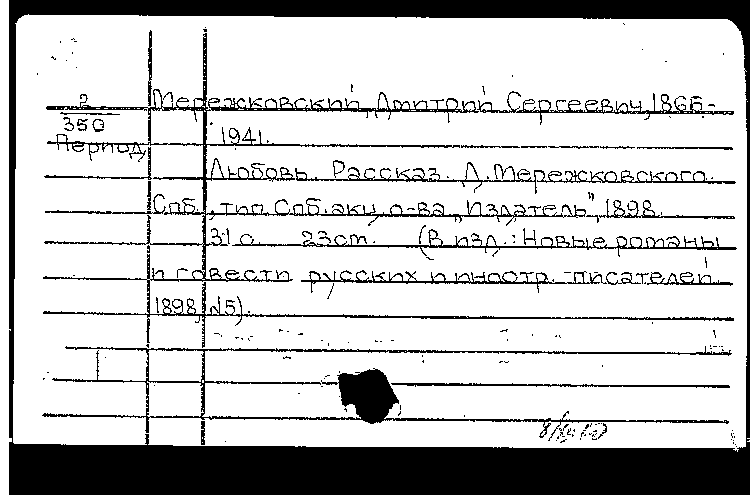 2
350
Период
Мережковский, Дмитрий Сергеевич, 1865-
1941.
Любовь. Рассказ. Д. Мережковского.
Спб., тип. Спб. акц. о-ва „Издатель", 1898.
31 с. 23 cm. (В изд.: Новые романы
и повести русских и иностр. писателей
1898, №5).